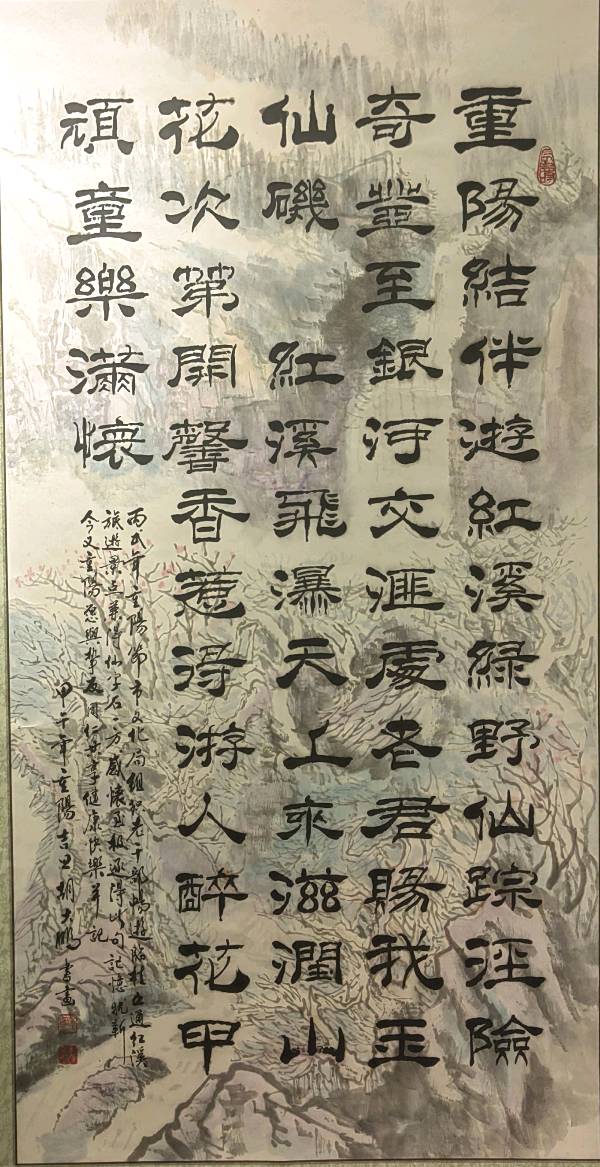 重陽結伴遊紅溪綠野仙踪涇險
奇豋至銀河交滙處老君賜我玉
仙磯 紅溪飛瀑天上來滋潤山
花次第開馨香惹得游人醉花甲
頑童樂滿懷
丙戌年重陽節市文化局組織老干部暢遊臨桂五通紅溪
旅遊景点兼得仙字石一方感懷至极逐得此句記憶猶新
今又重陽愿與摯友同仁共享健康快樂并記
甲午年重陽吉旦胡大鵬書畫